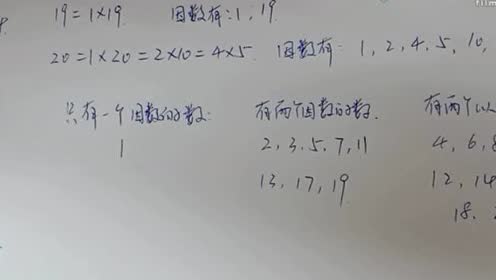 film
19=1×19. 因数有:1, 19.
20=1×20=2×10=4×5. 因数有: 1, 2, 4, 5, 10,
只有一个因数的数: 有两个因数的数. 有两个以
1 2, 3, 5, 7, 11 4, 6, 8
13, 17, 19 12, 14
18.